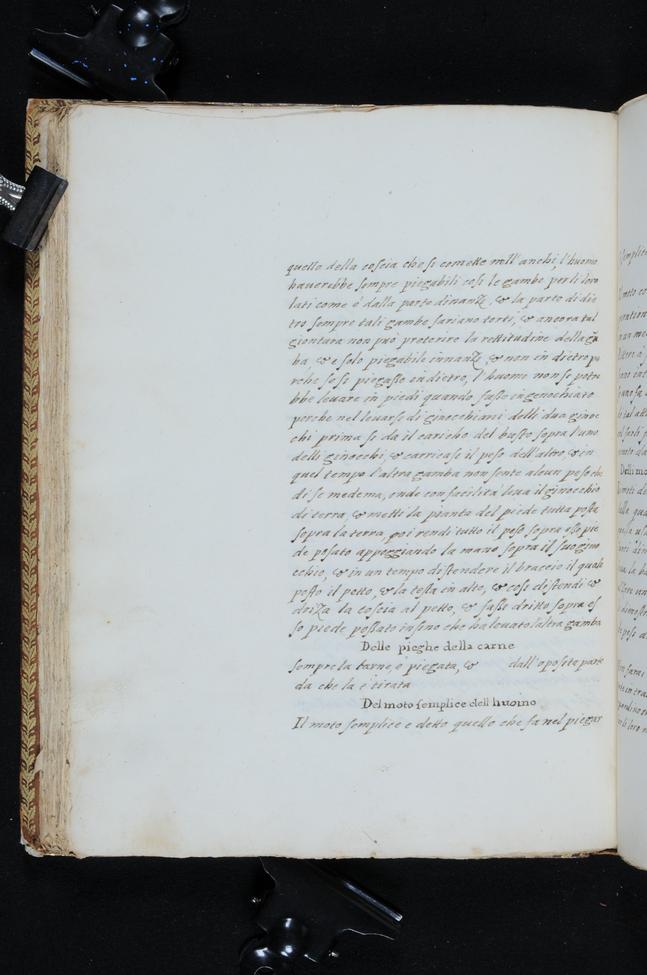 quello della coscia che si conette nell'anchi, l'huomo
hauerebbe sempre piegabili cosi le gambe per li loro
lati come è dalla parte dinanzi, & la parte di die
tro sempre tali gambe sariano torti, & ancora tal
giontura non può preterire la rettitudine della gã
ba & e solo piegabile innanzi & non in dietro pe
rche se si piegasse in dietro, l'huomo non se potre
bbe leuare in piedi quando fusse ingenochiato
perche nel leuarse di ginocchioni delli duo ginoc
chi prima se da il caricho del busto sopra l'uno
delli ginocchi, & carricase il peso dell'altro & in
quel tempo l'altra gamba non sente alcun peso che
di se medema, onde con facilità leua il ginocchio
di terra, & metti la pianta del piede tutta posta
sopra la terra, poi rendi tutto il peso sopra esso pie
de posato appoggiando la mano, sopra il suo gino
cchio, & in un tempo distendere il braccio il quale
 il petto, & la testa in alto, & cosi distendi &
drizza la coscia al petto, & fasse dritto sopra es
so piede possato insino che ha leuato l'altra gamba
Delle pieghe della carne
sempre la carne e piegata, & dall'oposita parte
da che la e' tirata
Del moto semplice dell huomo
Il moto semplice e detto quello che fa nel piegar